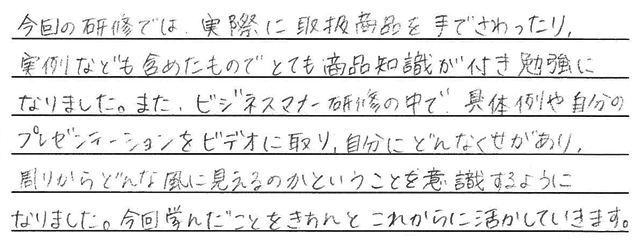 今回の研修では、実際に取扱商品を手でさわったり、
実例なども含めたものでとても商品知識が付き勉強に
なりました。また、ビジネスマナー研修の中で、具体例や自分の
プレゼンテーションをビデオに取り、自分にどんなくせがあり、
周りからどんな風に見えるのかということを意識するように
なりました。今回学んだことをきちんとこれからに活かしていきます。